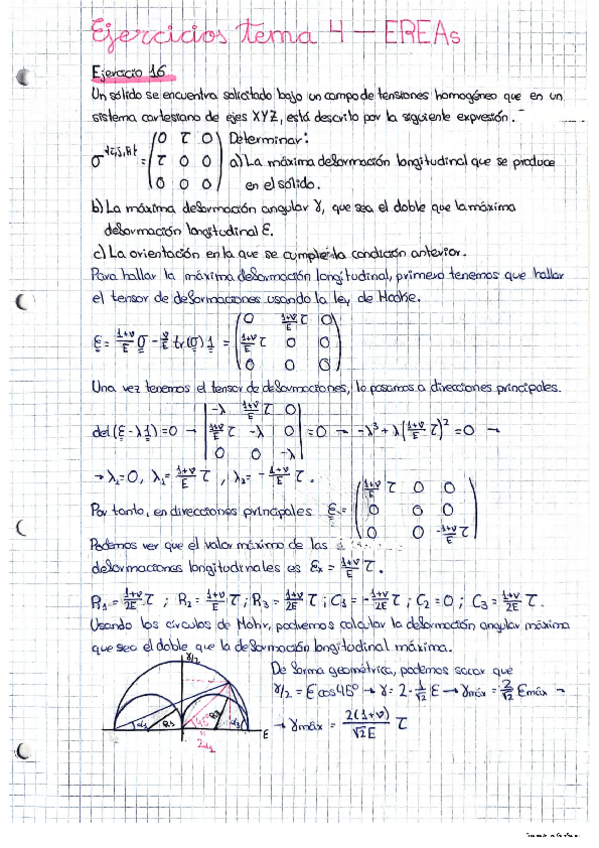 Ejercicios tema 4 – EREAs
Ejercicio 16
Un sólido se encuentra solicitado bajo un campo de tensiones homogéneo que en un
sistema cartesiano de ejes XYZ, está descrito por la siguiente expresión.
σ = (0 τ 0 / τ 0 0 / 0 0 0) Determinar:
a) La máxima deformación longitudinal que se produce
en el sólido.
b) La máxima deformación angular γ, que sea el doble que la máxima
deformación longitudinal ε.
c) La orientación en la que se cumple la condición anterior.
Para hallar la máxima deformación longitudinal, primero tenemos que hallar
el tensor de deformaciones usando la ley de Hooke.
ε = 1+ν/E σ - ν/E tr(σ) 1 = (0 1+ν/E τ 0 / 1+ν/E τ 0 0 / 0 0 0)
Una vez tenemos el tensor de deformaciones, lo pasamos a direcciones principales.
det(ε-λ1)=0 → |-λ 1+ν/E τ 0 / 1+ν/E τ -λ 0 / 0 0 -λ| = 0 → -λ³+λ(1+ν/E τ)² = 0 →
→ λ=0, λ₁= 1+ν/E τ, λ₂= - 1+ν/E τ.
Por tanto, en direcciones principales ε = (1+ν/E τ 0 0 / 0 0 0 / 0 0 -1+ν/E τ)
Podemos ver que el valor máximo de las
deformaciones longitudinales es εx = 1+ν/E τ.
R₁= 1+ν/2E τ ; R₂= 1+ν/E τ ; R₃= 1+ν/2E τ ; C₁= -1+ν/2E τ ; C₂=0 ; C₃= 1+ν/2E τ.
Usando los círculos de Mohr, podremos calcular la deformación angular máxima
que sea el doble que la deformación longitudinal máxima.
γ/2
De forma geométrica, podemos sacar que
γ/2 = ε cos45° → γ = 2·1/√2 ε → γmáx = 2/√2 εmáx →
→ γmáx = 2(1+ν)/√2E τ
45°
ε